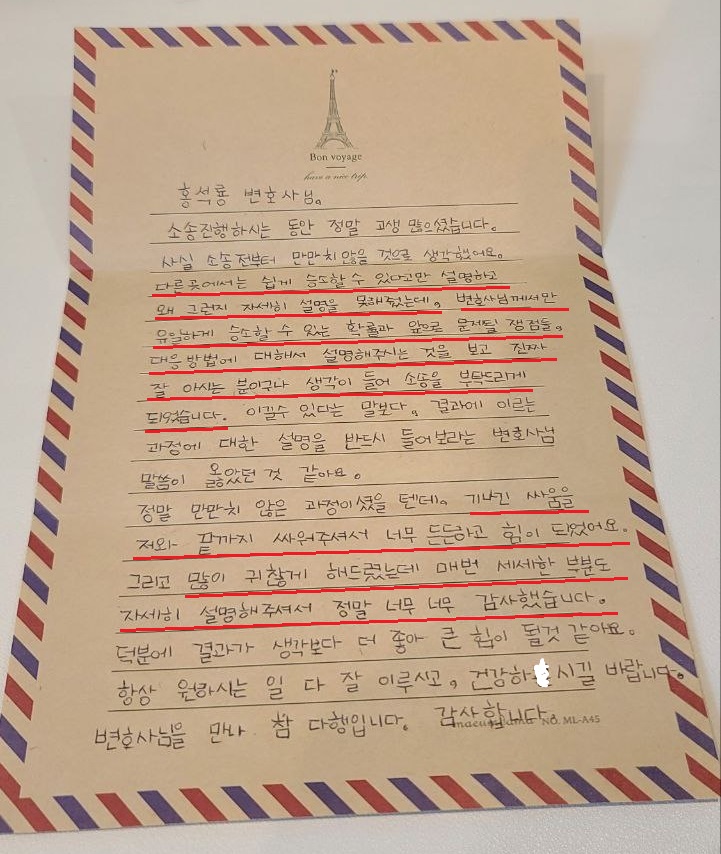 Bon voyage
have a nice trip.
홍석룡 변호사님。
소송진행하시는 동안 정말 고생 많으셨습니다.
사실 소송 전부터 만만치 않을 것으로 생각했어요.
다른곳에서는 쉽게 승소할 수 있다고만 설명하고
왜 그런지 자세히 설명을 못해줬는데, 변호사님께서만
유일하게 승소할 수 있는 확률과 앞으로 문제될 쟁점들,
대응방법에 대해서 설명해주시는 것을 보고 진짜
잘 아시는 분이구나 생각이 들어 소송을 부탁드리게
되었습니다. 이길수 있다는 말보다, 결과에 이르는
과정에 대한 설명을 반드시 들어보라는 변호사님
말씀이 옳았던 것 같아요.
정말 만만치 않은 과정이셨을 텐데, 기나긴 싸움을
저와 끝까지 싸워주셔서 너무 든든하고 힘이 되었어요.
그리고 많이 귀찮게 해드렸는데 매번 세세한 부분도
자세히 설명해주셔서 정말 너무 너무 감사했습니다.
덕분에 결과가 생각보다 더 좋아 큰 힘이 될것 같아요.
항상 원하시는 일 다 잘 이루시고, 건강하시길 바랍니다.
변호사님을 만나 참 다행입니다. 감사합니다.
NO. ML-A45